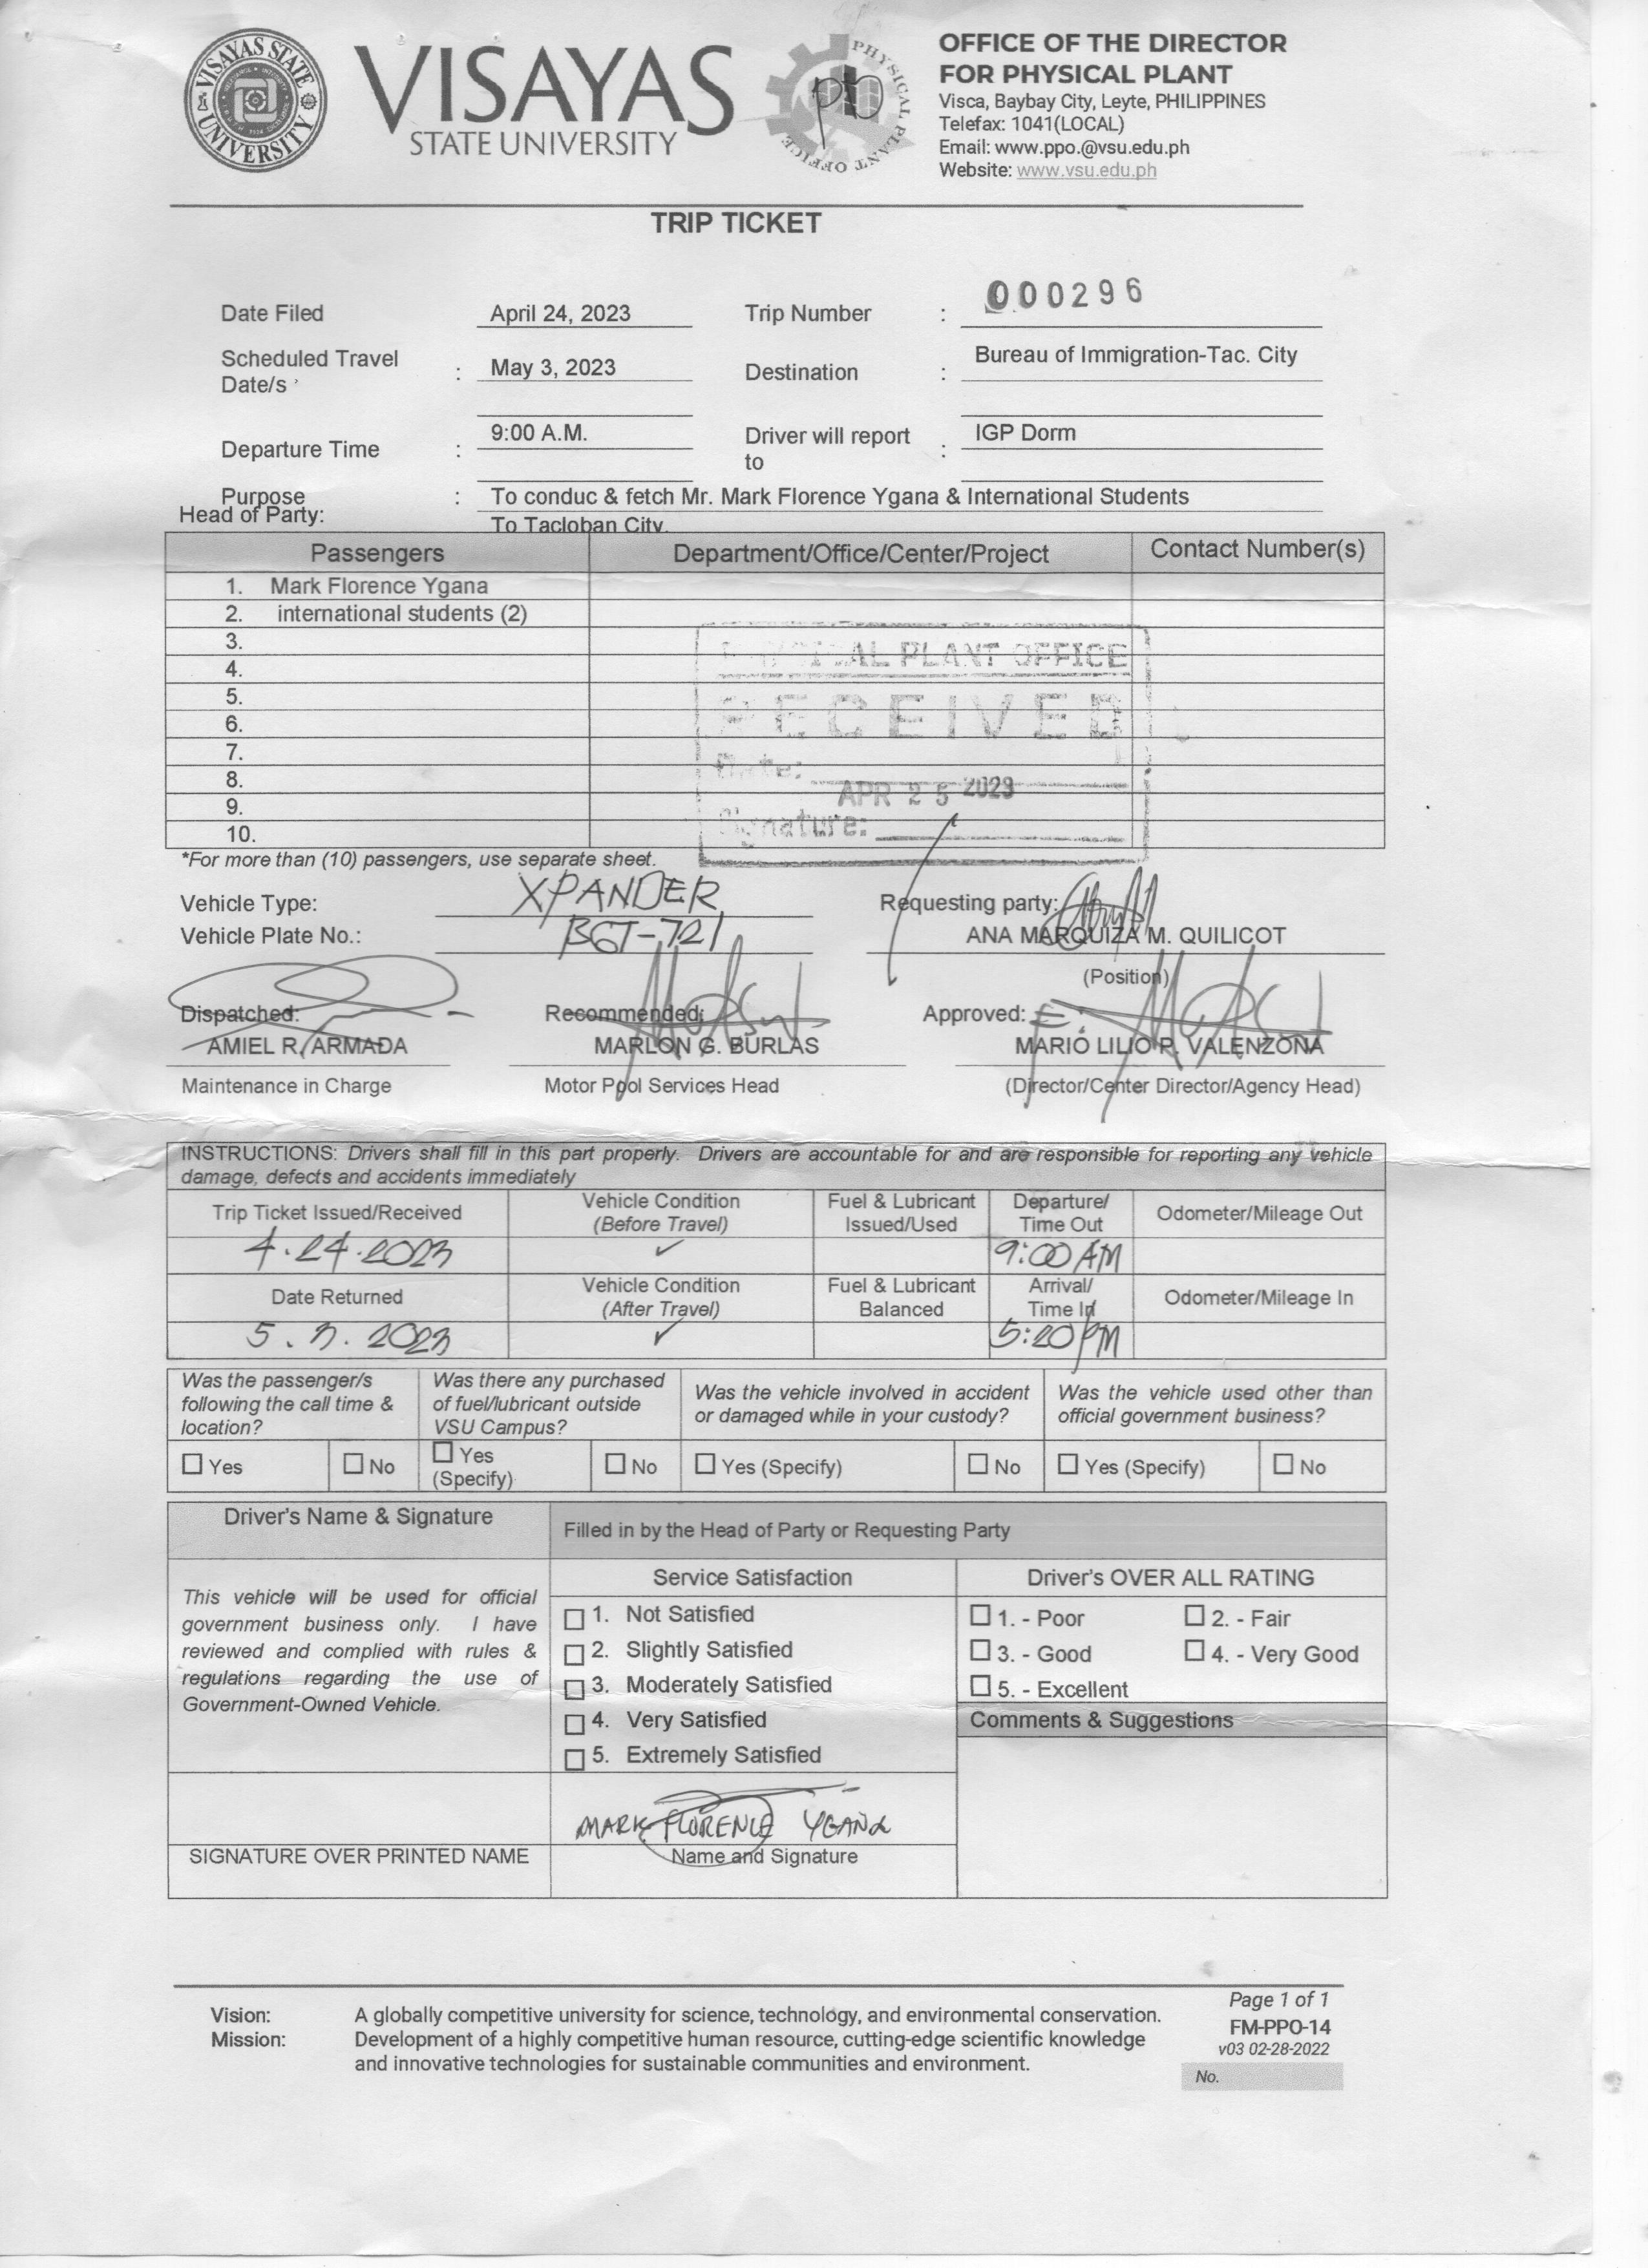 VISAYAS STATE UNIVERSITY
VISAYAS
STATE UNIVERSITY
PHYSICAL PLANT OFFICE
OFFICE OF THE DIRECTOR
FOR PHYSICAL PLANT
Visca, Baybay City, Leyte, PHILIPPINES
Telefax: 1041(LOCAL)
Email: www.ppo.@vsu.edu.ph
Website: www.vsu.edu.ph
TRIP TICKET
Date Filed April 24, 2023 Trip Number : 000296
Scheduled Travel Date/s : May 3, 2023 Destination : Bureau of Immigration-Tac. City
Departure Time : 9:00 A.M. Driver will report to : IGP Dorm
Purpose : To conduc & fetch Mr. Mark Florence Ygana & International Students
Head of Party: To Tacloban City.
Passengers Department/Office/Center/Project Contact Number(s)
1. Mark Florence Ygana
2. international students (2)
3.
4.
5.
6.
7.
8.
9.
10.
PHYSICAL PLANT OFFICE
RECEIVED
Date: APR 25 2023
Signature:
*For more than (10) passengers, use separate sheet.
Vehicle Type: XPANDER Requesting party:
Vehicle Plate No.: BGT-721 ANA MARQUIZA M. QUILICOT
(Position)
Dispatched: Recommended: Approved:
AMIEL R. ARMADA MARLON G. BURLAS MARIO LILIO P. VALENZONA
Maintenance in Charge Motor Pool Services Head (Director/Center Director/Agency Head)
INSTRUCTIONS: Drivers shall fill in this part properly. Drivers are accountable for and are responsible for reporting any vehicle
damage, defects and accidents immediately
Trip Ticket Issued/Received Vehicle Condition (Before Travel) Fuel & Lubricant Issued/Used Departure/ Time Out Odometer/Mileage Out
4.24.2023 ✓ 9:00 AM
Date Returned Vehicle Condition (After Travel) Fuel & Lubricant Balanced Arrival/ Time In Odometer/Mileage In
5.3.2023 ✓ 5:20 PM
Was the passenger/s following the call time & location? Was there any purchased of fuel/lubricant outside VSU Campus? Was the vehicle involved in accident or damaged while in your custody? Was the vehicle used other than official government business?
☐ Yes ☐ No ☐ Yes (Specify) ☐ No ☐ Yes (Specify) ☐ No ☐ Yes (Specify) ☐ No
Driver's Name & Signature Filled in by the Head of Party or Requesting Party
This vehicle will be used for official
government business only. I have
reviewed and complied with rules &
regulations regarding the use of
Government-Owned Vehicle.
Service Satisfaction
☐ 1. Not Satisfied
☐ 2. Slightly Satisfied
☐ 3. Moderately Satisfied
☐ 4. Very Satisfied
☐ 5. Extremely Satisfied
Driver's OVER ALL RATING
☐ 1. - Poor ☐ 2. - Fair
☐ 3. - Good ☐ 4. - Very Good
☐ 5. - Excellent
Comments & Suggestions
MARK FLORENCE YGANA
SIGNATURE OVER PRINTED NAME Name and Signature
Vision: A globally competitive university for science, technology, and environmental conservation.
Mission: Development of a highly competitive human resource, cutting-edge scientific knowledge
and innovative technologies for sustainable communities and environment.
Page 1 of 1
FM-PPO-14
v03 02-28-2022
No.